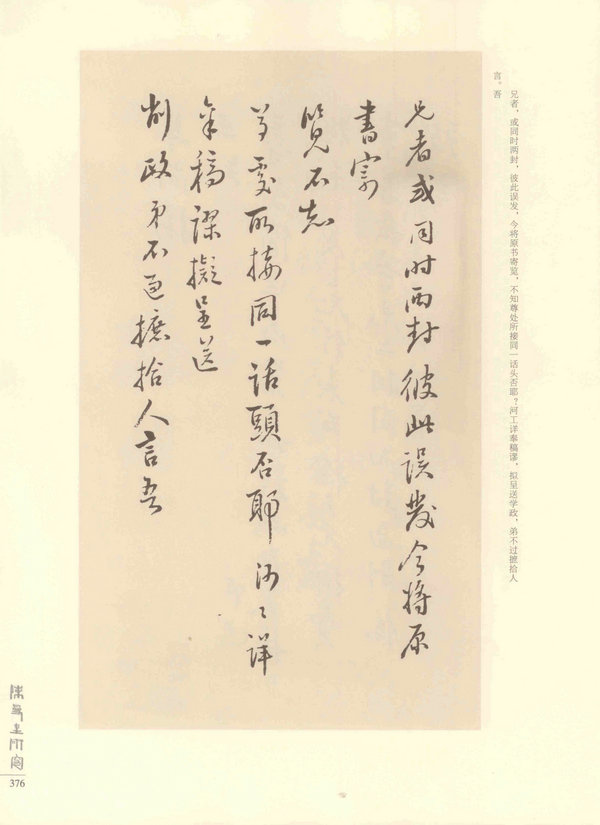 兄者，或同时两封，彼此误发，今将原书寄览，不知尊处所接同一话头否耶？河工详奉稿谬，拟呈送学政，弟不过摭拾人
言。吾
兄者或同时两封彼此误發今將原
書寄
覽不知
尊處所接同一話頭否耶河工詳
奉稿謬擬呈送
削政弟不過摭拾人言吾
376